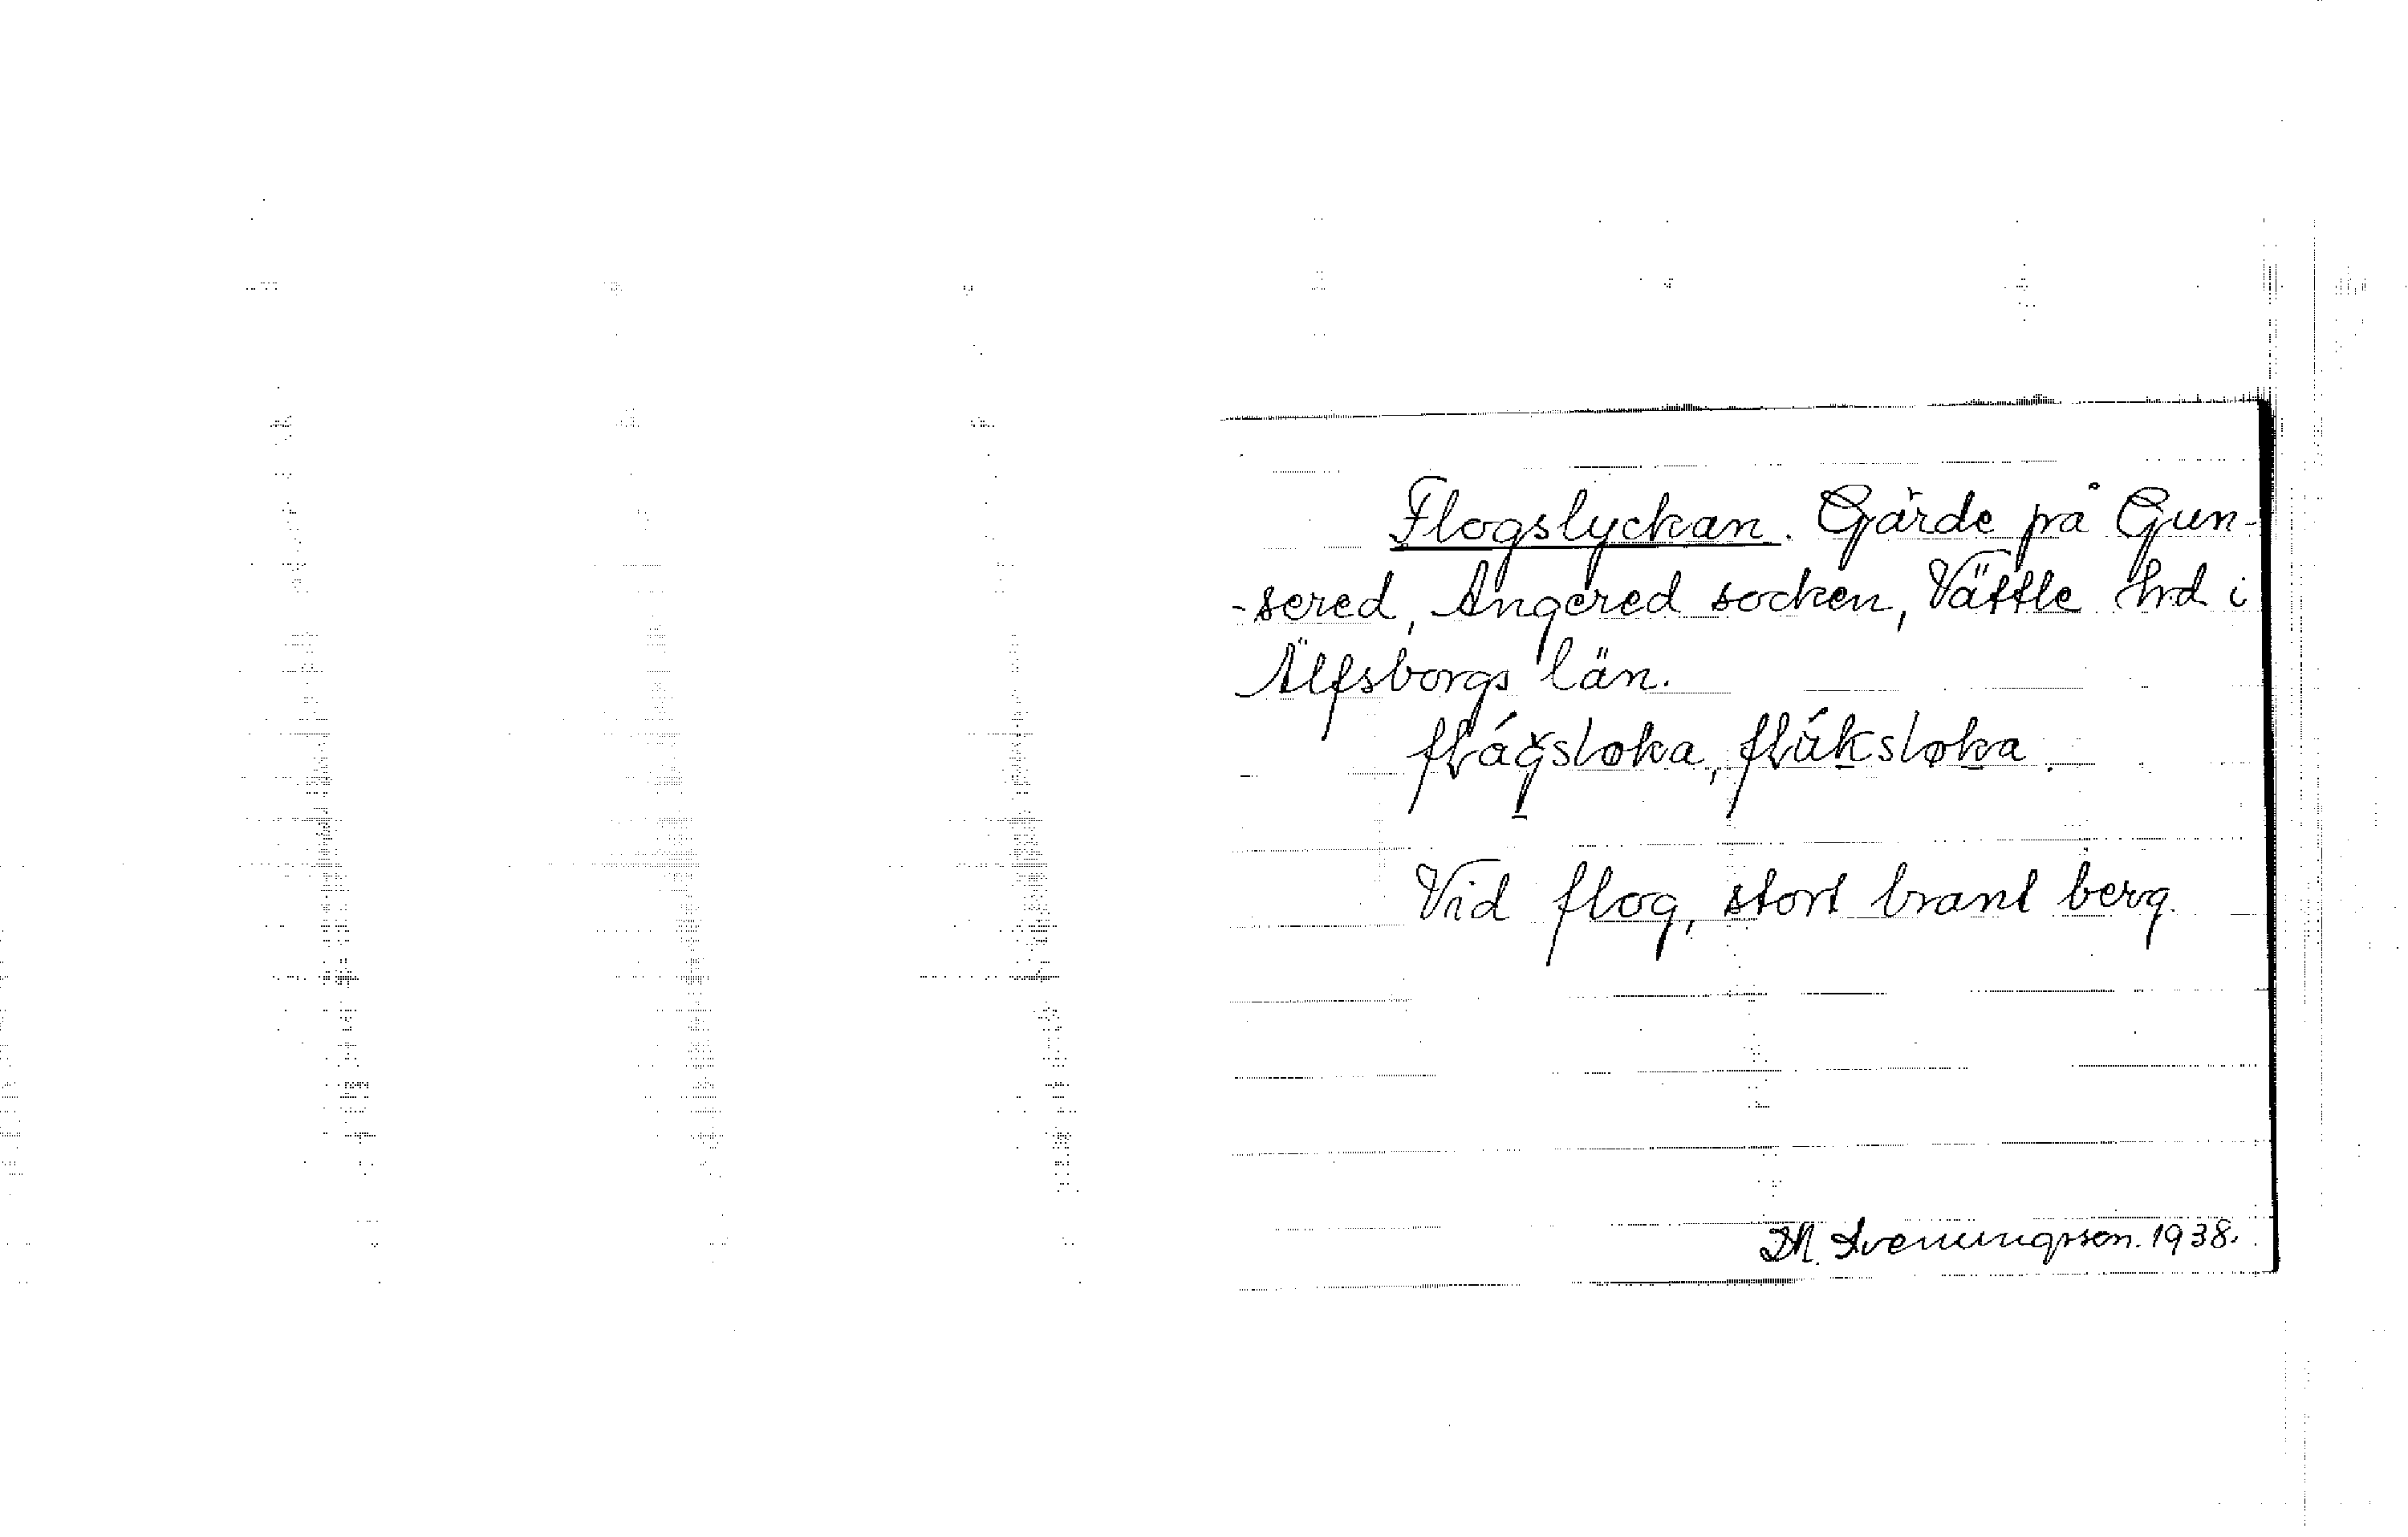 Flogslyckan. Gärde på Gun-
-sered, Angered socken, Vättle hrd i
Älfsborgs län.
flágsløka, flúksløka.
Vid flog, stort brant berg.
Th. Svenungsson. 1938.